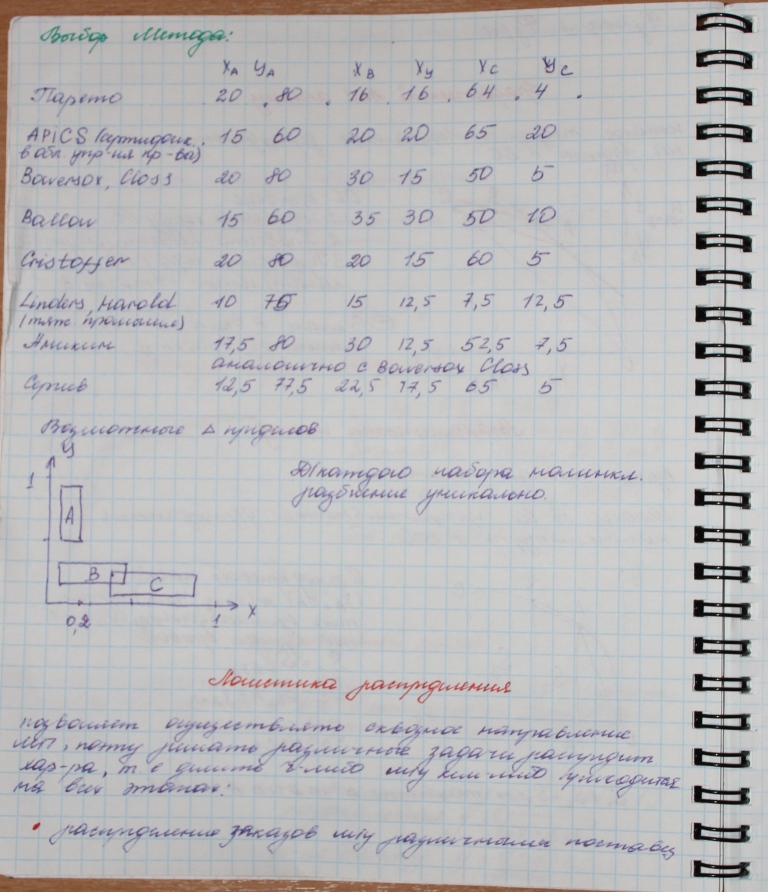 Выбор метода:
XA YA XB XУ XC УC
Парето 20 . 80 . 16 . 16 . 64 . 4 .
APICS (артидоик.
в обл. упр-ия пр-ва) 15 60 20 20 65 20
Bowersox, Closs 20 80 30 15 50 5
Ballou 15 60 35 30 50 10
Cristoffer 20 80 20 15 60 5
Linders, Harold 10 75 15 12,5 7,5 12,5
(тяж. промышл)
Аникин 17,5 80 30 12,5 52,5 7,5
аналогично с Bowersox Closs
12,5 77,5 22,5 17,5 65 5
Возможные Δ пределов
У
1
Д/каждого набора номенкл.
разбиение уникально.
A
B C
0,2 1 X
Логистика распределения
позволяет осуществлять сквозное направление
МП, поэту решать различные задачи распредит
хар-ра, т е делить ч-либо м/у кем-либо приходится
на всех этапах:
• распределение заказов м/у различными поставщ